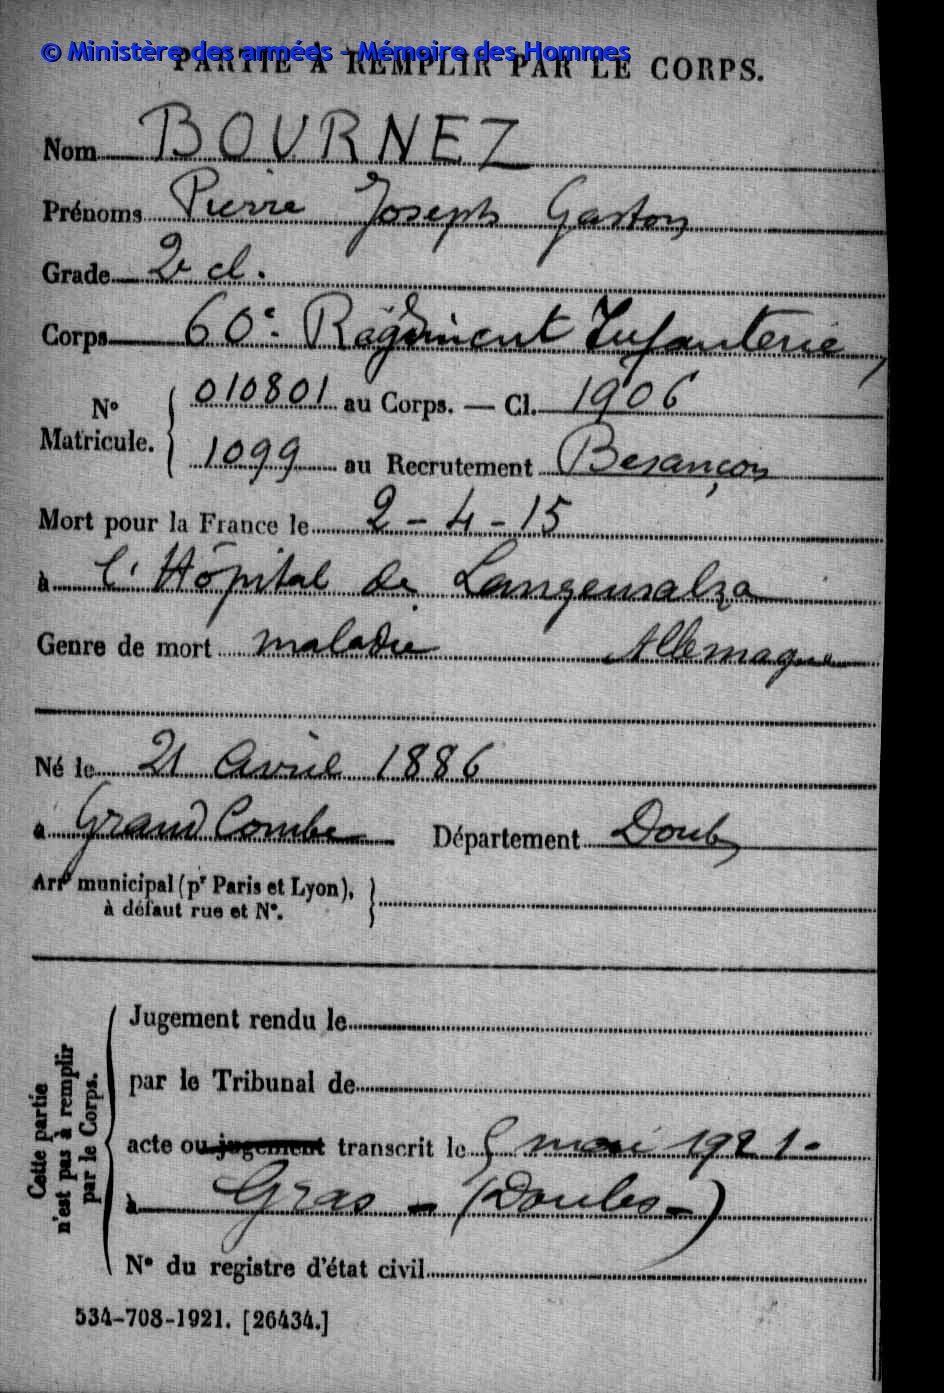 © Ministère des armées - Mémoire des Hommes
PARTIE À REMPLIR PAR LE CORPS.
Nom BOURNEZ
Prénoms Pierre Joseph Gaston
Grade 2e cl.
Corps 60e Régiment Infanterie
N° Matricule. 010801 au Corps. — Cl. 1906
1099 au Recrutement Besançon
Mort pour la France le 2-4-15
à l'Hôpital de Langensalza
Genre de mort maladie Allemagne
Né le 21 Avril 1886
à Grand Combe Département Doubs
Arrt municipal (pr Paris et Lyon),
à défaut rue et N°.
Cette partie
n'est pas à remplir
par le Corps.
Jugement rendu le
par le Tribunal de
acte ou jugement transcrit le 5 mai 1921-
à Gras - (Doubs-)
N° du registre d'état civil
534-708-1921. [26434.]